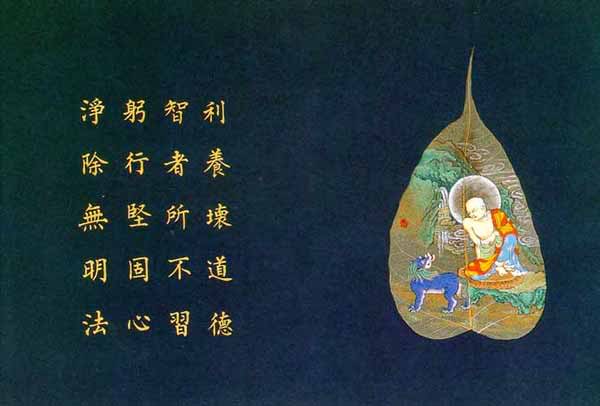 利養壞道德
智者所不習
躬行堅固心
淨除無明法